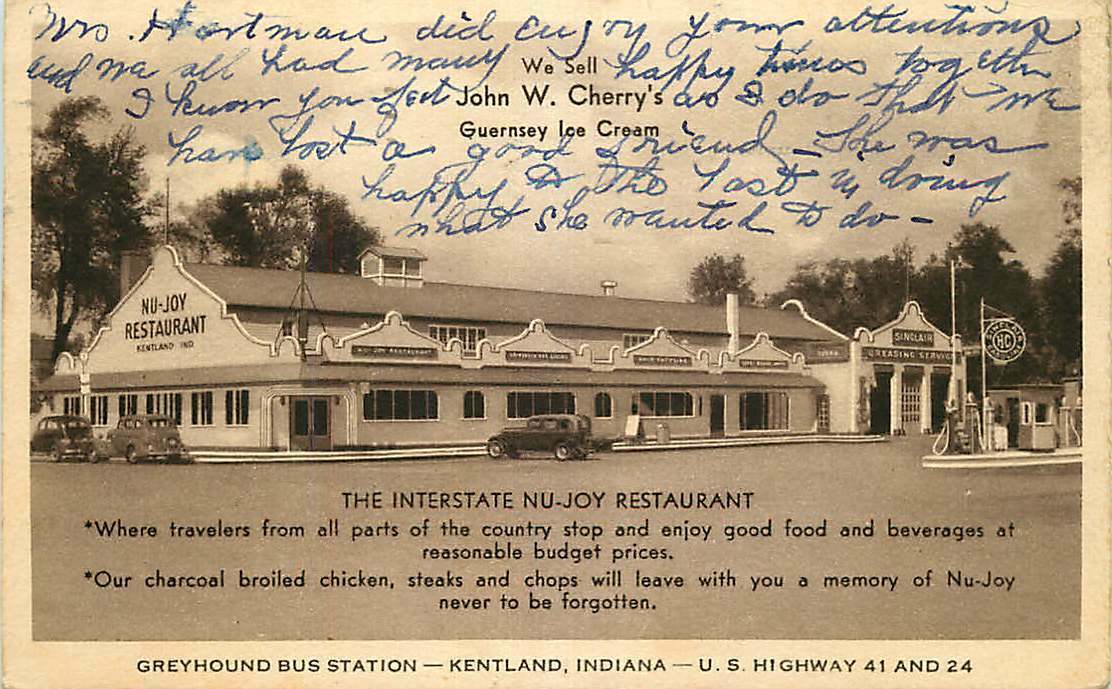 Mrs. Hartman did enjoy your attentions
and we all had many happy times together
We Sell
I know you feel as I do that we
John W. Cherry's
Guernsey Ice Cream
have lost a good friend - She was
happy to the last in doing
what she wanted to do -
NU-JOY
RESTAURANT
KENTLAND IND
NU-JOY RESTAURANT
SINCLAIR
GREASING SERVICE
SINCLAIR
HC
GASOLINE
THE INTERSTATE NU-JOY RESTAURANT
*Where travelers from all parts of the country stop and enjoy good food and beverages at
reasonable budget prices.
*Our charcoal broiled chicken, steaks and chops will leave with you a memory of Nu-Joy
never to be forgotten.
GREYHOUND BUS STATION — KENTLAND, INDIANA — U. S. HIGHWAY 41 AND 24